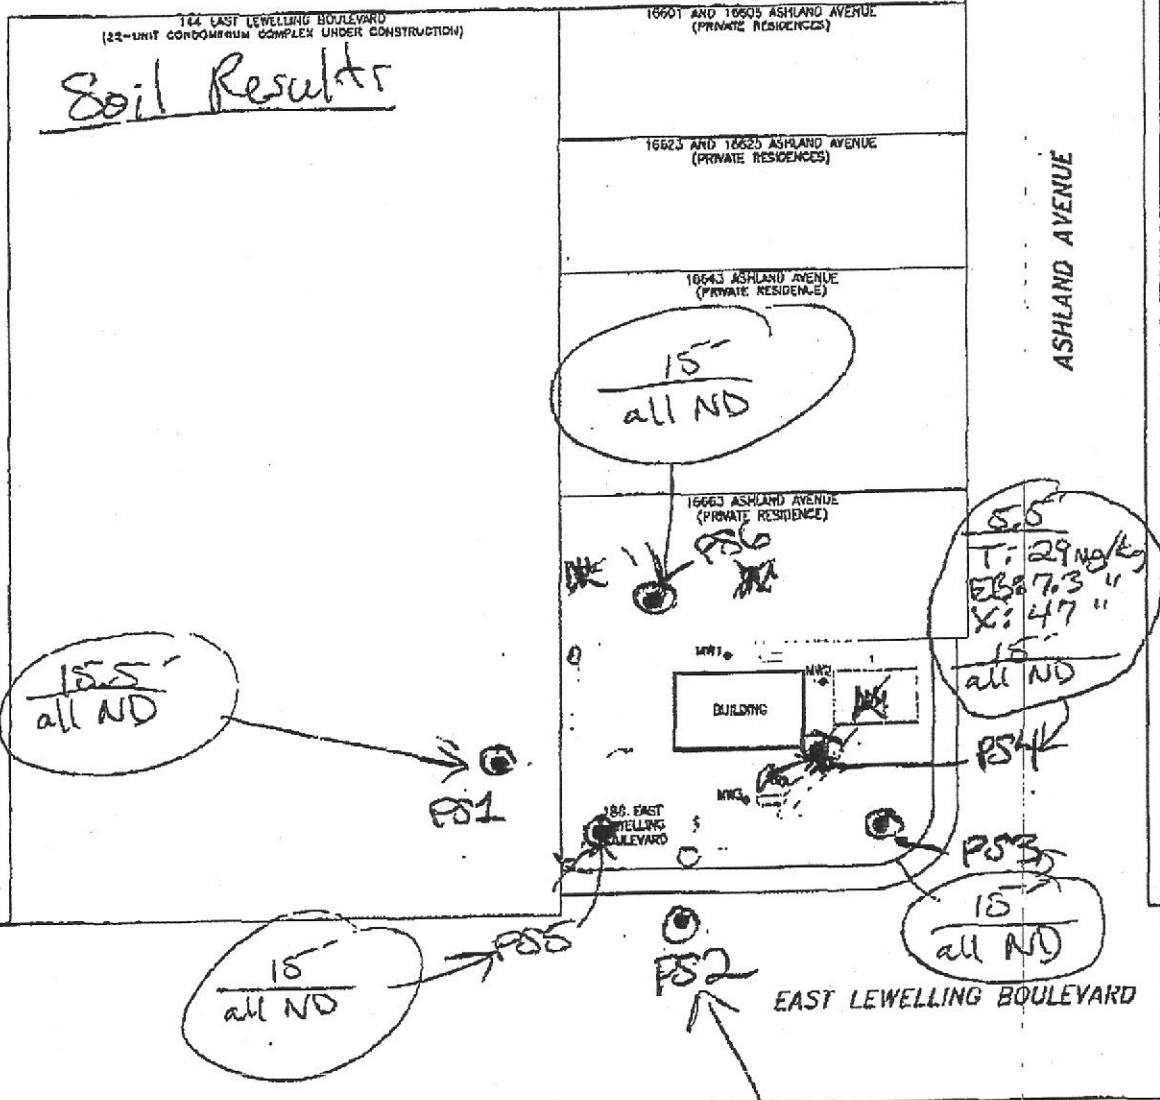 144 EAST LEWELLING BOULEVARD
(22-UNIT CONDOMINIUM COMPLEX UNDER CONSTRUCTION)
Soil Results
16601 AND 16605 ASHLAND AVENUE
(PRIVATE RESIDENCES)
16623 AND 16625 ASHLAND AVENUE
(PRIVATE RESIDENCES)
ASHLAND AVENUE
16643 ASHLAND AVENUE
(PRIVATE RESIDENCE)
15'
all ND
16663 ASHLAND AVENUE
(PRIVATE RESIDENCE)
PS6
5.5'
T: 29 ug/kg
EB: 7.3 "
X: 47 "
15'
all ND
PS4
MW1
MW2
BUILDING
MW3
15.5'
all ND
PS1
186 EAST
LEWELLING
BOULEVARD
PS3
15'
all ND
PS5
15'
all ND
PS2
EAST LEWELLING BOULEVARD